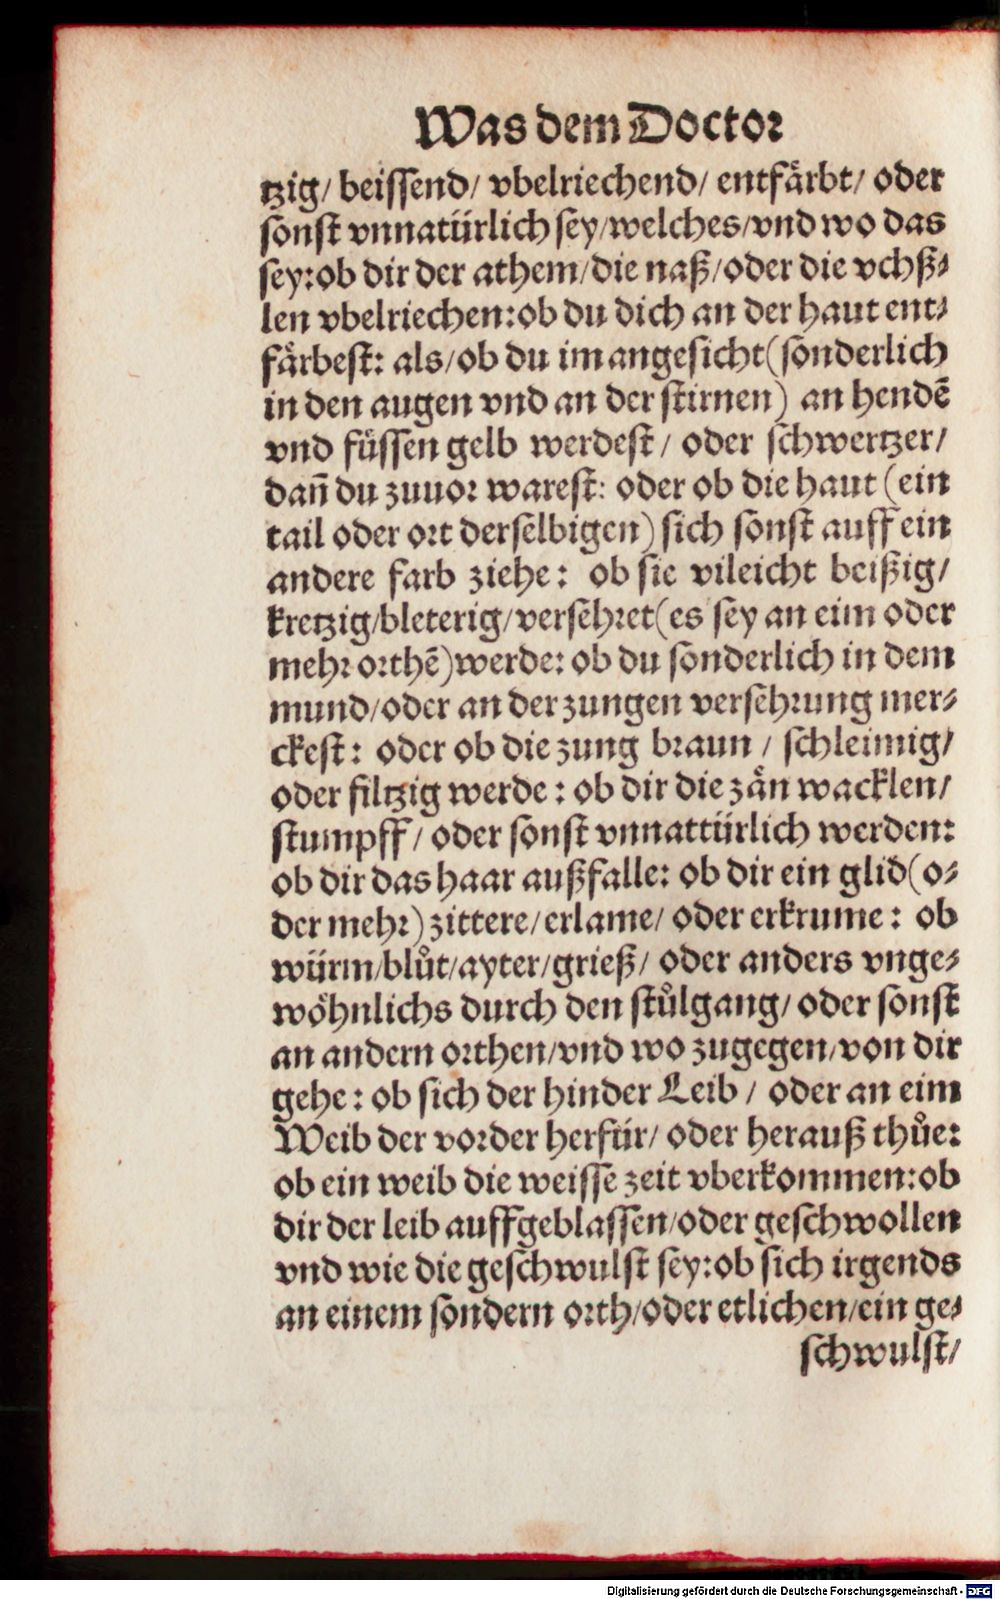 Was dem Doctor
tzig/ beissend/ vbelriechend/ entfaͤrbt/ oder
sonst vnnatürlich sey/welches/vnd wo das
sey:ob dir der athem/die naß/oder die vchß⸗
len vbelriechen:ob du dich an der haut ent⸗
faͤrbest: als/ob du im angesicht(sonderlich
in den augen vnd an der stirnen) an hendẽ
vnd füssen gelb werdest/ oder schwertzer/
dañ du zuuor warest: oder ob die haut (ein
tail oder ort derselbigen) sich sonst auff ein
andere farb ziehe: ob sie vileicht beißig/
kretzig/bleterig/versehret(es sey an eim oder
mehr orthẽ)werde: ob du sonderlich in dem
mund/oder an der zungen versehrung mer⸗
ckest: oder ob die zung braun / schleimig/
oder filtzig werde : ob dir die zaͤn wacklen/
stumpff/ oder sonst vnnattürlich werden:
ob dir das haar außfalle: ob dir ein glid(o⸗
der mehr)zittere/erlame/ oder erkrume : ob
würm/bluͦt/ayter/grieß/ oder anders vnge⸗
woͤhnlichs durch den stuͦlgang/ oder sonst
an andern orthen/vnd wo zugegen/von dir
gehe: ob sich der hinder Leib / oder an eim
Weib der vorder herfür/ oder herauß thuͦe:
ob ein weib die weisse zeit vberkommen:ob
dir der leib auffgeblassen/oder geschwollen
vnd wie die geschwulst sey:ob sich irgends
an einem sondern orth/oder etlichen/ein ge⸗
schwulst/
Digitalisierung gefördert durch die Deutsche Forschungsgemeinschaft - DFG